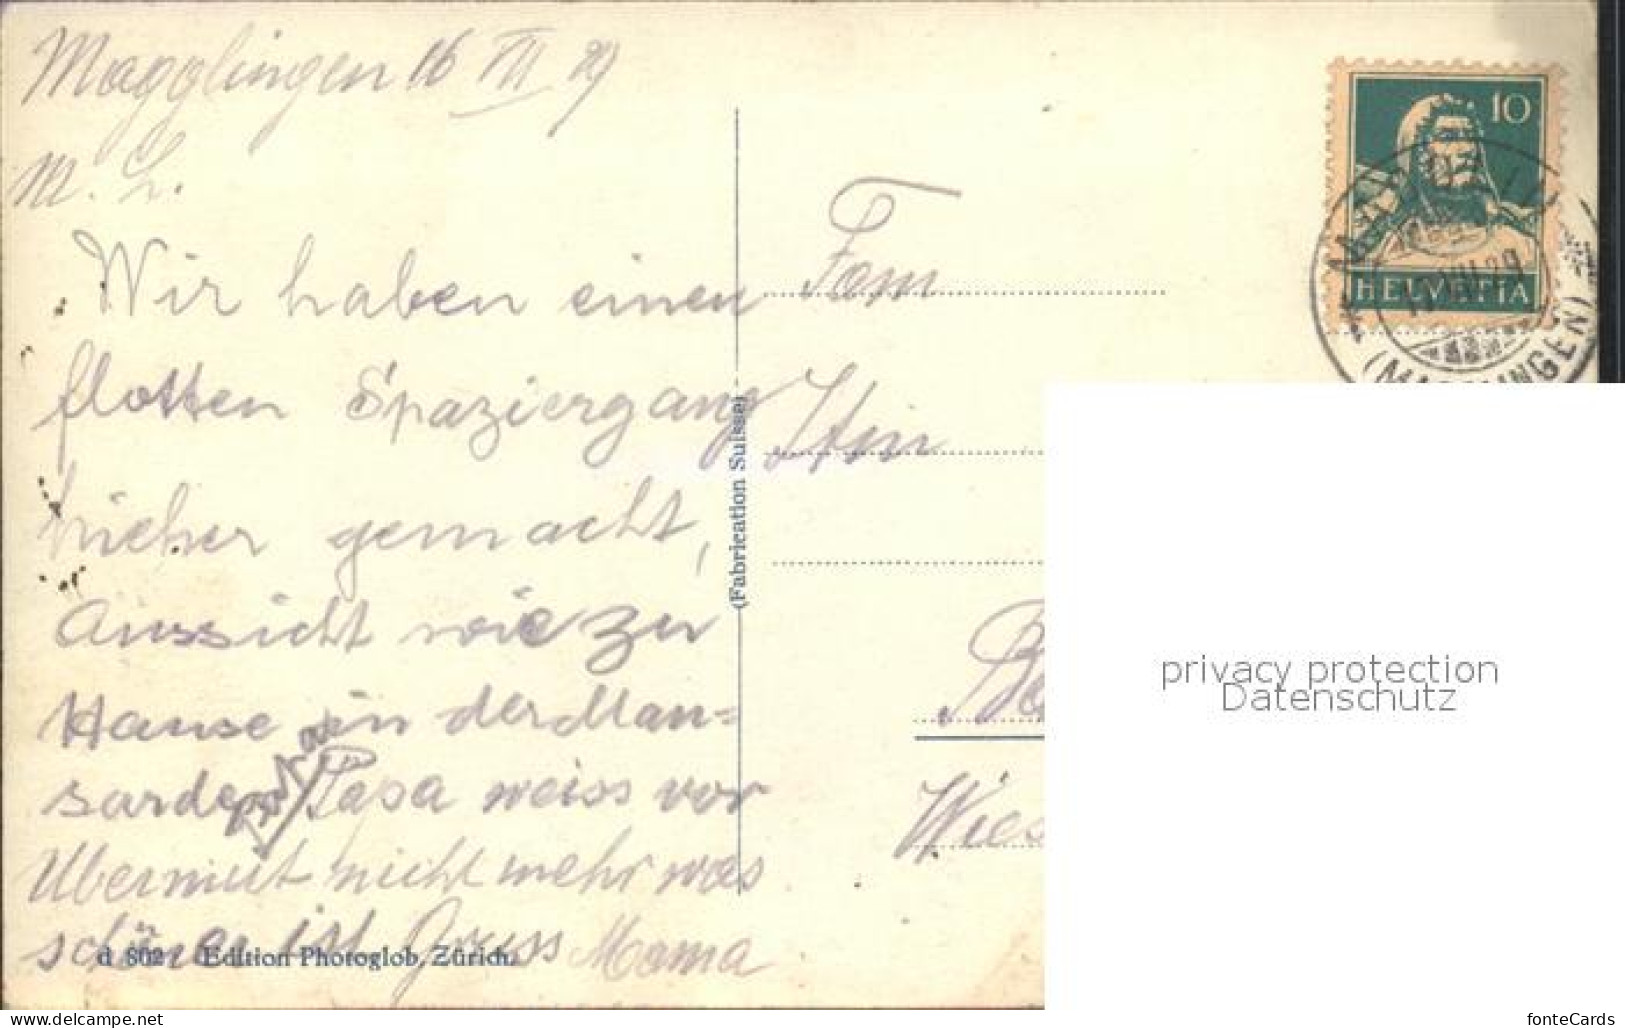 Magglingen 16 VII 29
M. L.
Wir haben einen
flotten Spaziergang
hieher gemacht,
Aussicht wie zu
Hause in der Man=
sarde, Papa weiss vor
Übermut nicht mehr was
schöner ist Gruss Mama
d 802 Edition Photoglob, Zürich.
(Fabrication Suisse)
Fam
10
HELVETIA
VIII.29
(MAGGLINGEN)
privacy protection
Datenschutz
www.delcampe.net
fonteCards